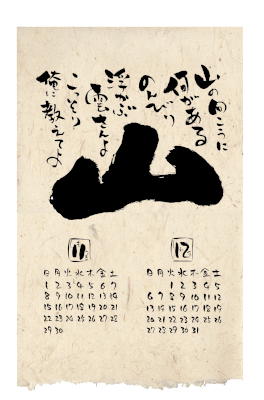 山の向こうに
何がある
のんびり
浮かぶ
雲さんよ
こっそり
俺に教えてよ
山
11
日 月 火 水 木 金 土
1 2 3 4 5 6 7
8 9 10 11 12 13 14
15 16 17 18 19 20 21
22 23 24 25 26 27 28
29 30
12
日 月 火 水 木 金 土
1 2 3 4 5
6 7 8 9 10 11 12
13 14 15 16 17 18 19
20 21 22 23 24 25 26
27 28 29 30 31